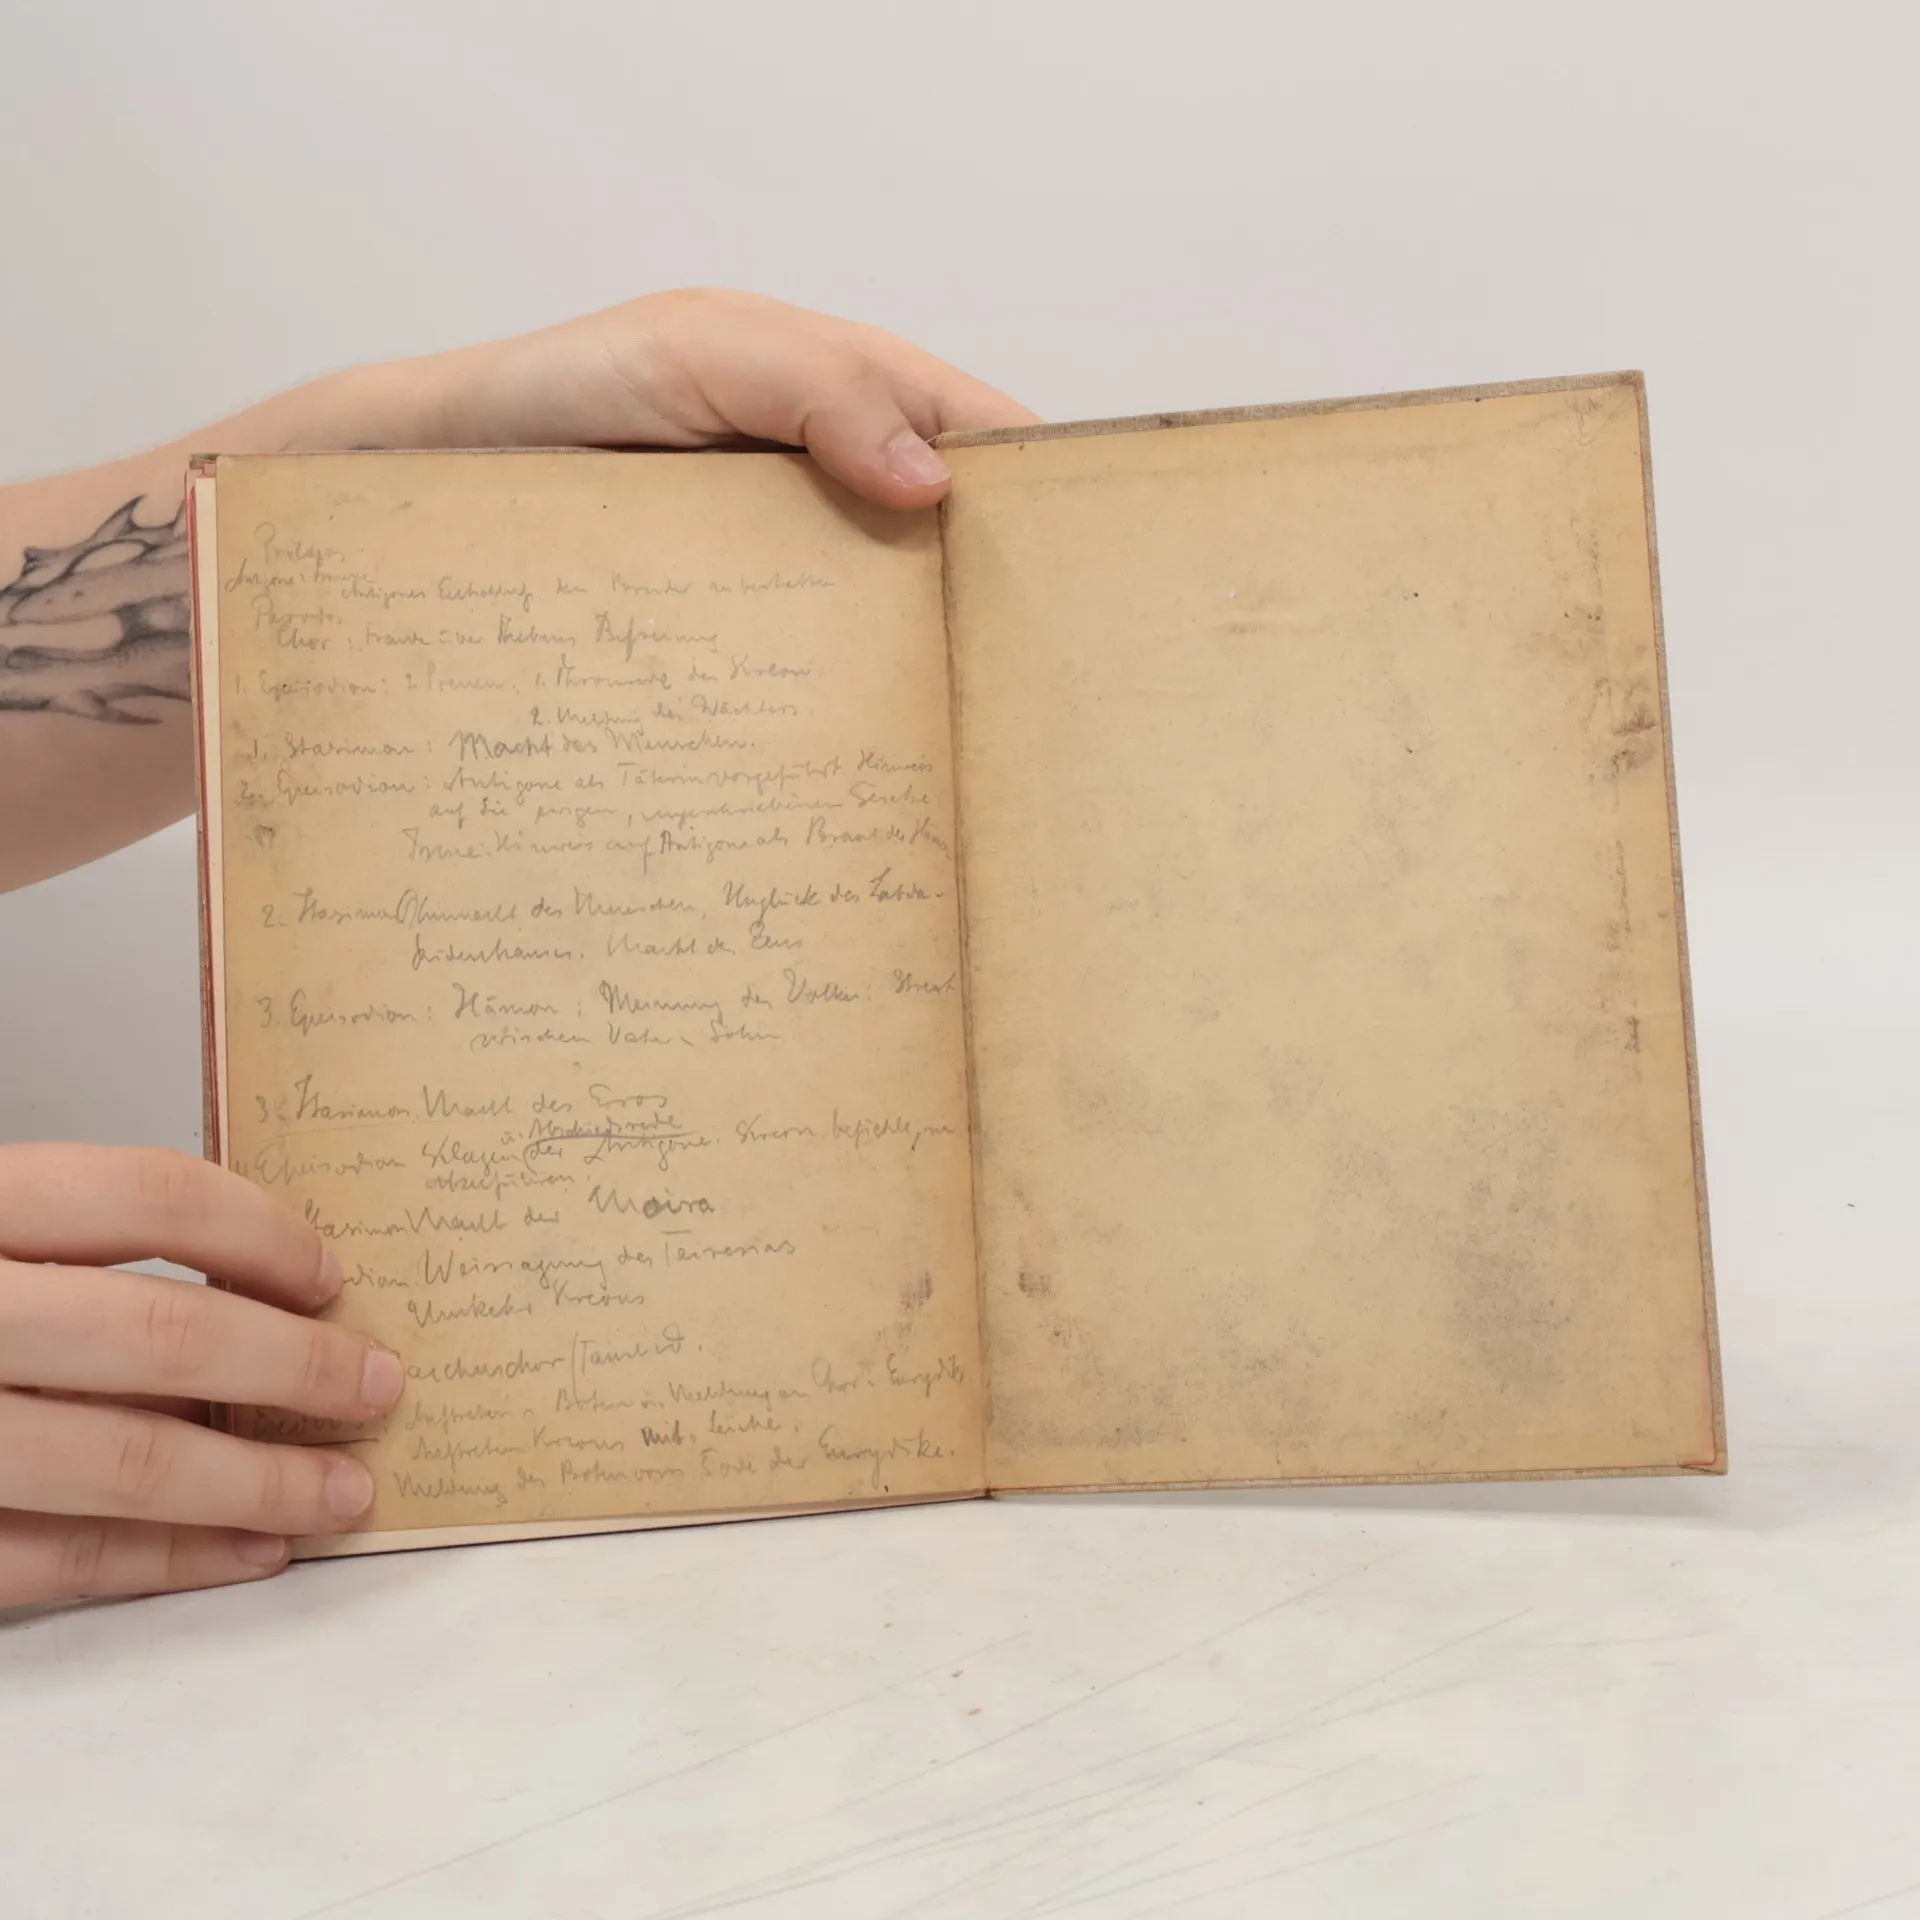 Prologos
Antigone: Ismene
Antigones Entschluß den Bruder zu bestatten
Parodos
Chor: Freude über Thebens Befreiung
1. Epeisodion: 2 Szenen: 1. Thronrede des Kreon.
2. Meldung des Wächters.
1. Stasimon: Macht des Menschen.
2. Epeisodion: Antigone als Täterin vorgeführt Hinweis
auf die ewigen, ungeschriebenen Gesetze
Ismene: Hinweis auf Antigone als Braut des Hämon
2. Stasimon Ohnmacht des Menschen, Unglück des Labda-
kidenhauses. Macht des Zeus
3. Epeisodion: Hämon: Meinung des Volkes: Streit
zwischen Vater u. Sohn
3. Stasimon. Macht des Eros
u. Abschiedsrede
4. Epeisodion Klagen der Antigone. Kreon befiehlt, sie
abzuführen.
Stasimon Macht der Moira
odion. Weissagung des Teiresias
Umkehr Kreons
acchuschor (Tanzlied.
Exodos: Auftreten d. Boten u. Meldung an Chor u. Eurydike.
Auftreten Kreons mit Leiche.
Meldung des Boten vom Tode der Eurydike.